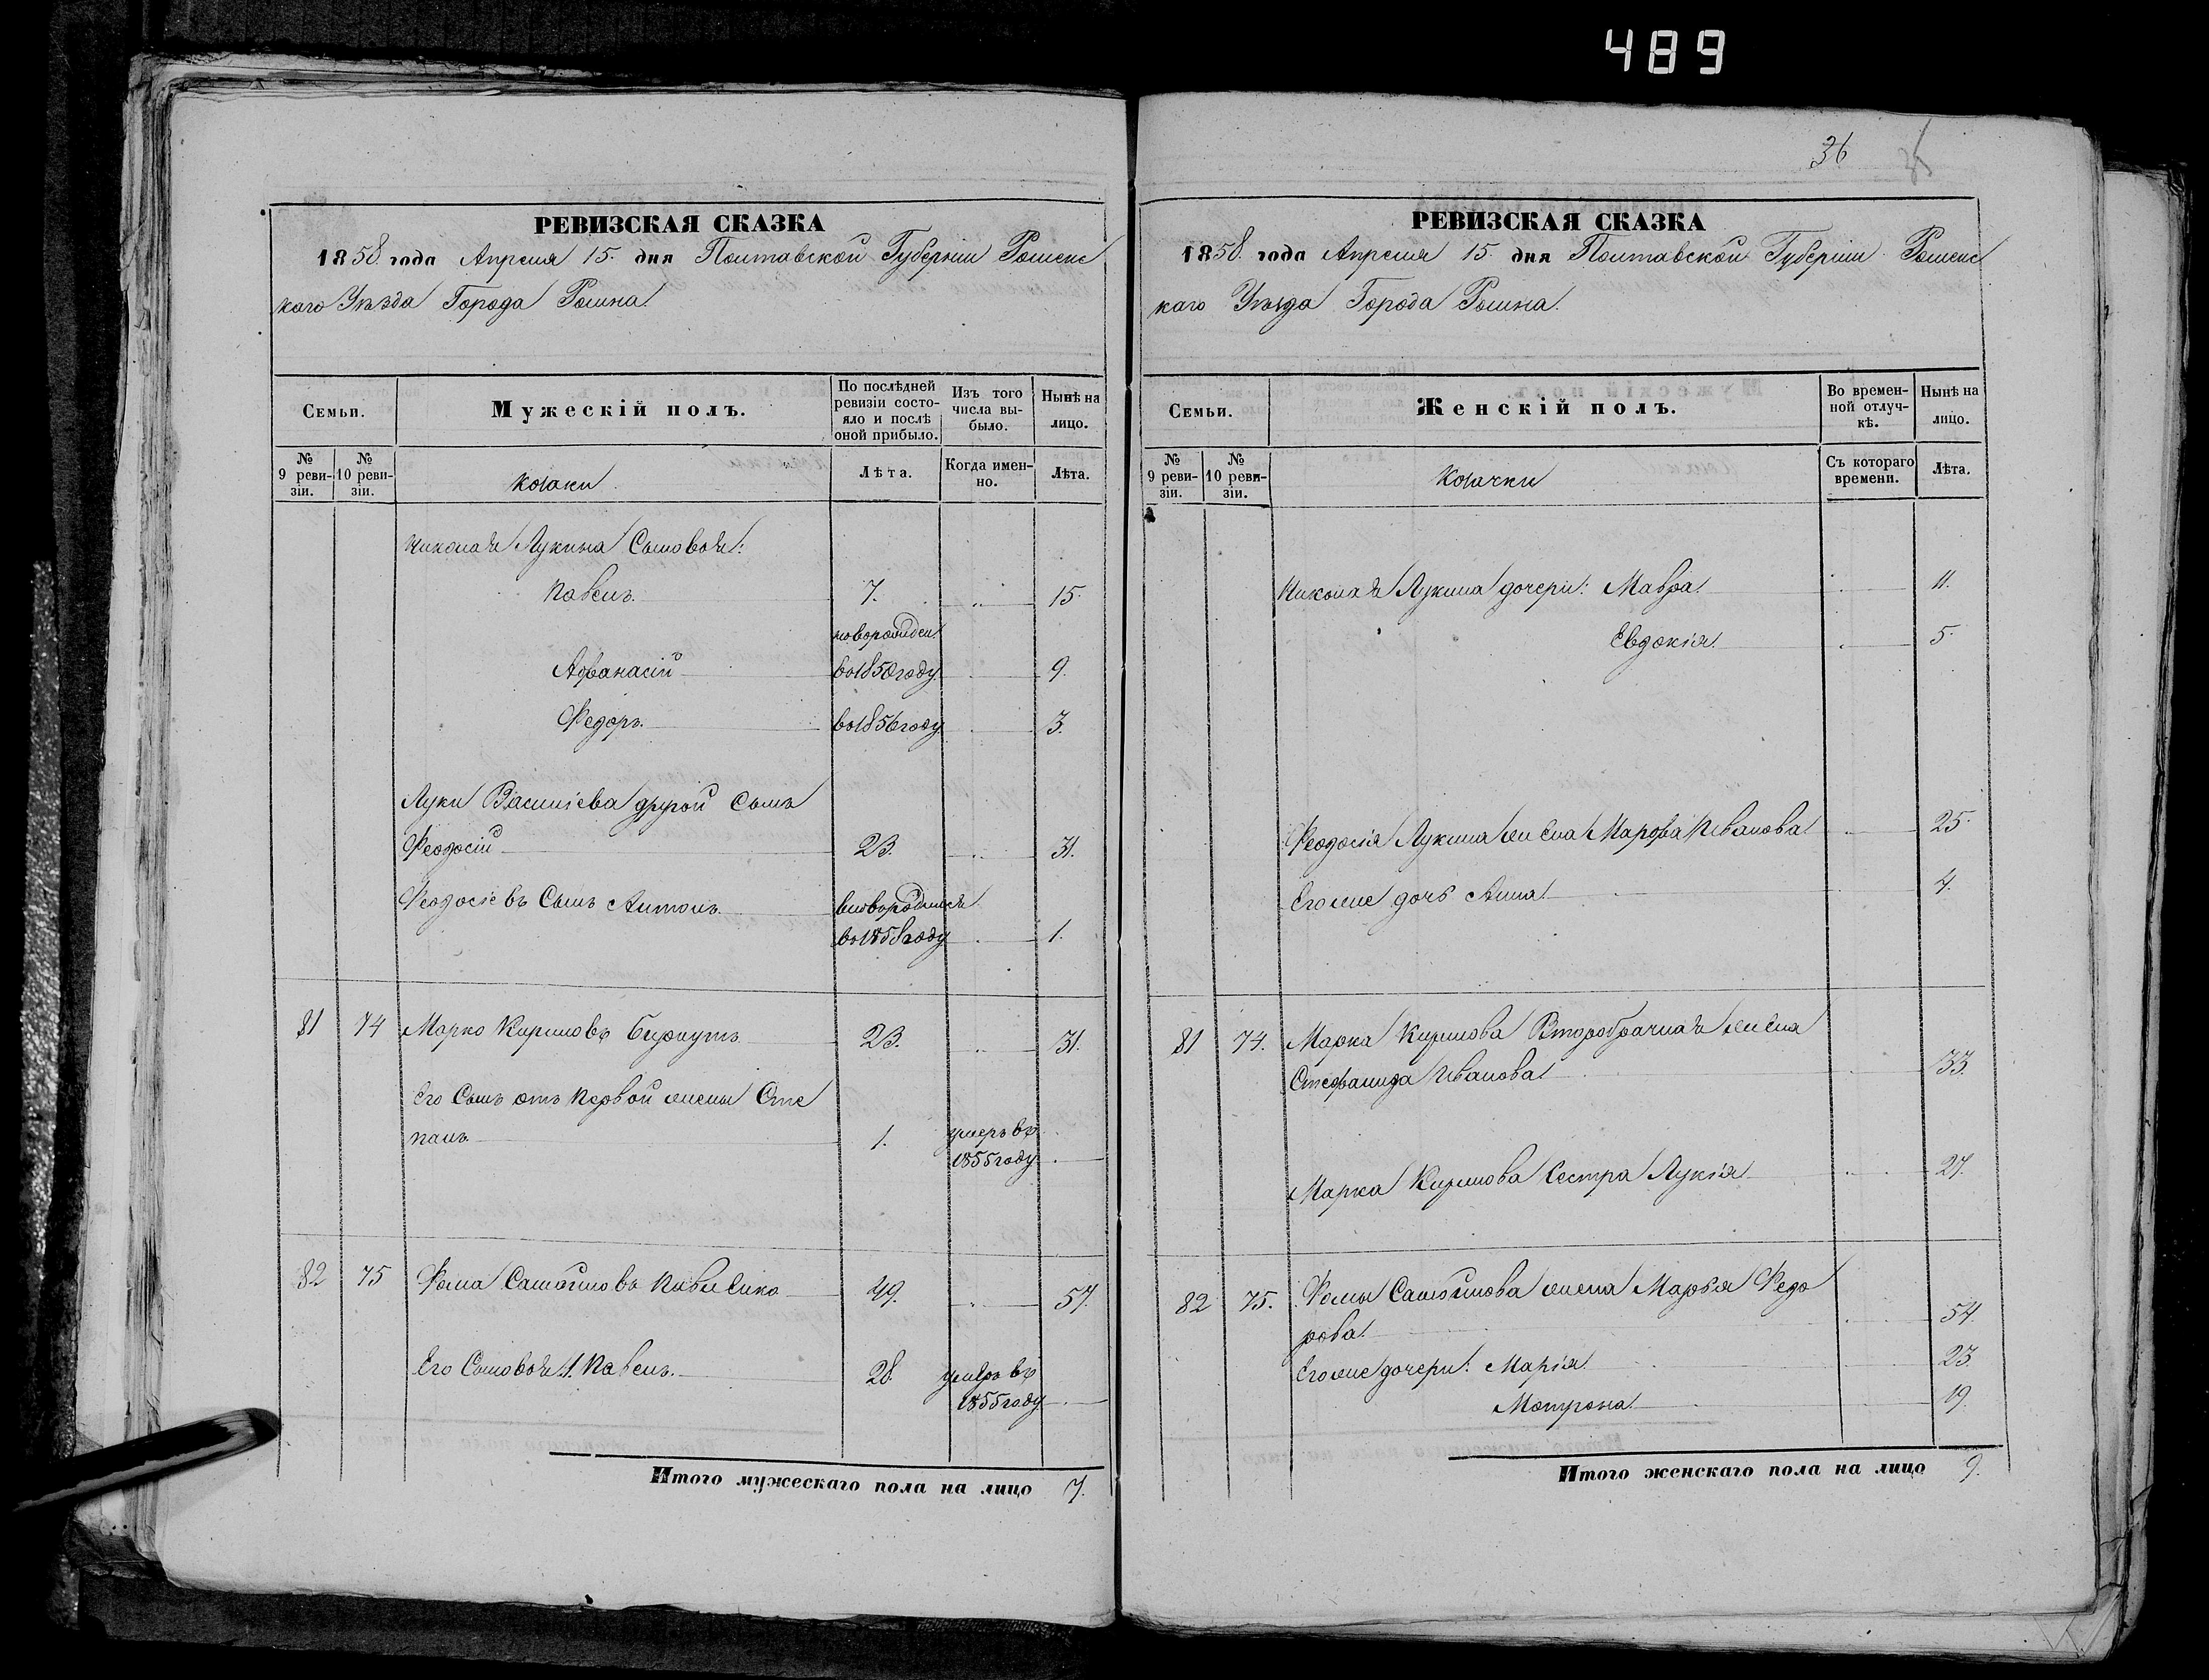 489
36
РЕВИЗСКАЯ СКАЗКА
1858 года Апреля 15. дня Полтавской Губерніи Роменс
каго Уѣзда Города Ромна.
Семьи.
Мужескій полъ.
По послѣдней ревизіи состояло и послѣ оной прибыло.
Изъ того числа выбыло.
Нынѣ на лицо.
№ 9 ревизіи.
№ 10 ревизіи.
козаки
Лѣта.
Когда именно.
Лѣта.
Николая Лукина Сыновья:
Павелъ. 7. 15.
новорожден.
Афанасій во 1850 году 9.
Федоръ. во 1856 году 3.
Луки Василіева другой Сынъ
Феодосій 23. 31.
Феодосіевъ Сынъ Антонъ
во 1858 году 1.
81 74 Марко Кириловъ 23. 31.
Его Сынъ отъ первой жены Сте
панъ 1. умеръ въ
1855 году
82 75 Фома Самойловъ 49. 57.
Его Сыновья 1. Павелъ. 28. умеръ въ
1855 году
Итого мужескаго пола на лицо 7.
РЕВИЗСКАЯ СКАЗКА
1858. года Апреля 15. дня Полтавской Губерніи Роменс
каго Уѣзда Города Ромна.
Семьи.
Женскій полъ.
Во временной отлучкѣ.
Нынѣ на лицо.
№ 9 ревизіи.
№ 10 ревизіи.
Козачки
Съ котораго времени.
Лѣта.
Николая Лукина дочери: Мавра 11.
Евдокія 5.
Феодосія Лукина жена Марфа Иванова 25.
Его же дочь Анна 4.
81 74. Марка Кирилова Второбрачная жена
Стефанида Иванова 33.
Марка Кирилова Сестра Лукія 27.
82 75. Фомы Самойлова жена Марья Федо
рова 54.
Его же дочери: Марія 23.
Мотрона 19.
Итого женскаго пола на лицо 9.